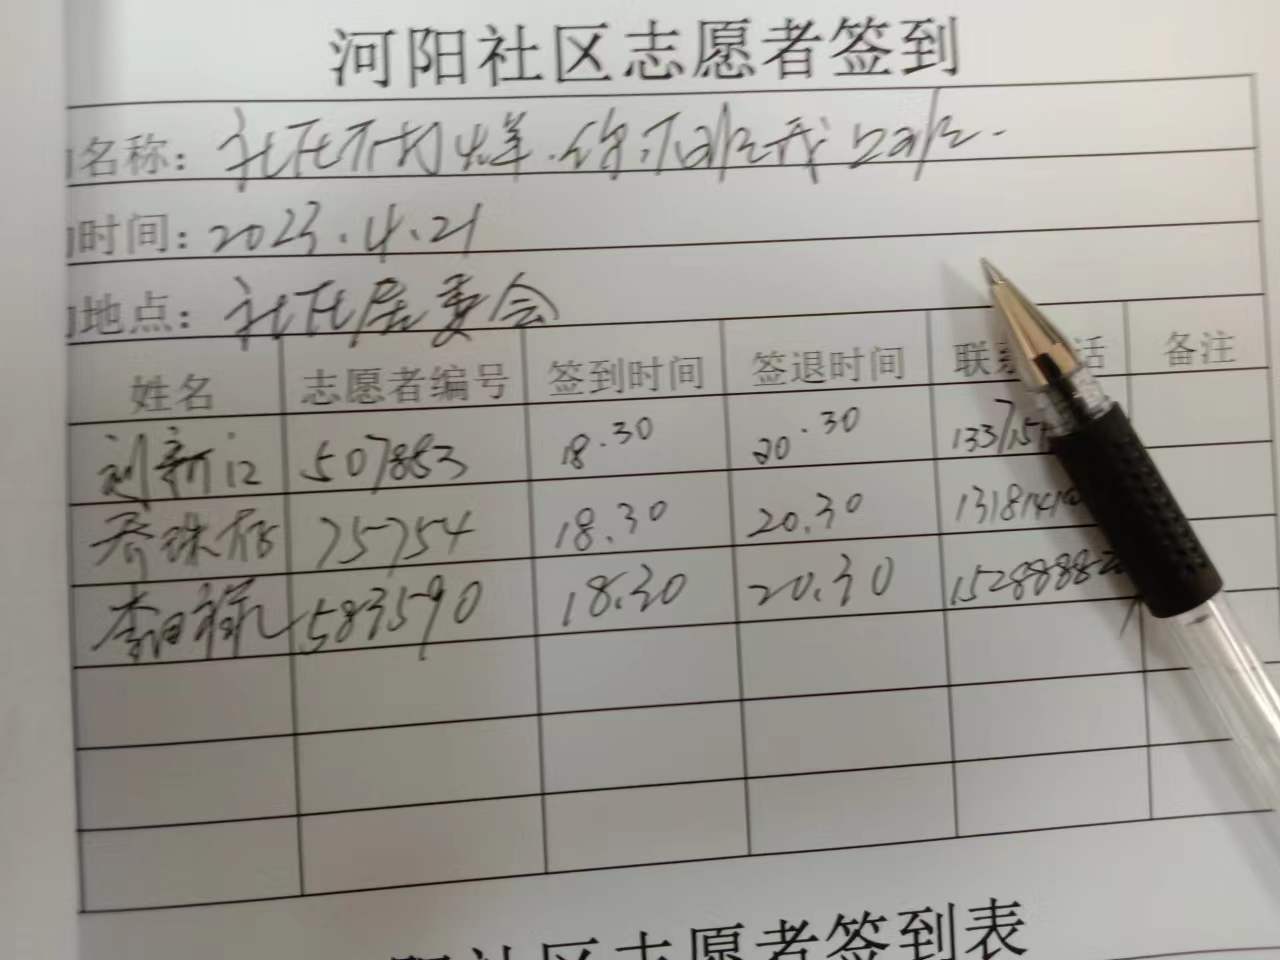 河阳社区志愿者签到
名称：社区不打烊.你下班我上班.
时间：2023.4.21
地点：社区居委会
姓名 志愿者编号 签到时间 签退时间 联 话 备注
刘新江 507853 18.30 20.30
75754 18.30 20.30 1318141
李 583590 18.30 20.30 1528888
阳社区志愿者签到表